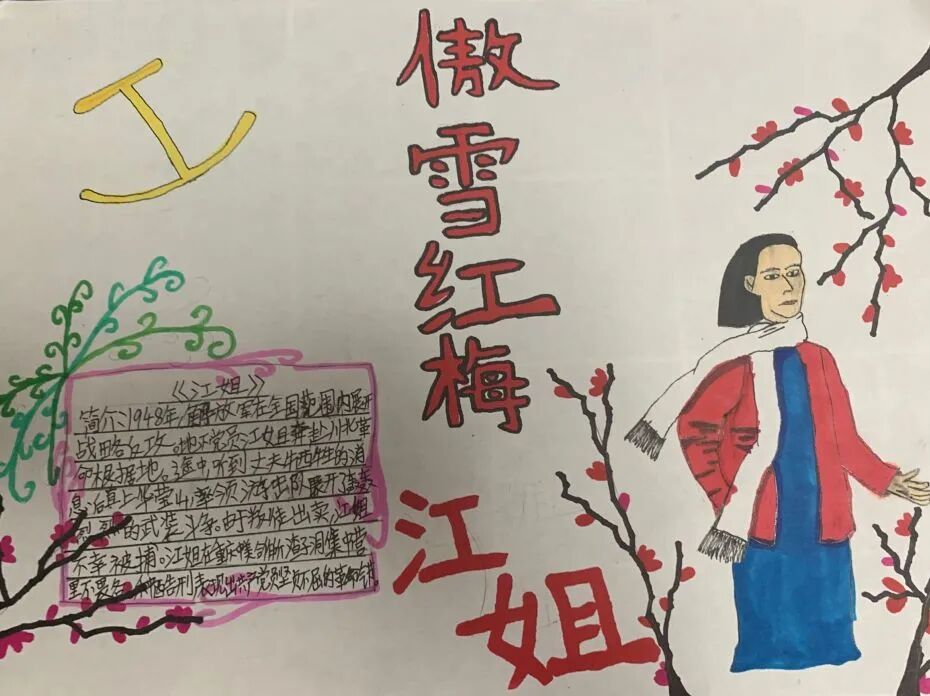 傲
雪
红
梅
江
姐
《江姐》
简介:1948年解放军在全国范围内展开
战略反攻。地下党员江姐奔赴川北华
根据地。途中听到丈夫牺牲的消
息后直上华蓥山,率领游击队展开
的武装斗争。叛徒出卖,江姐
不幸被捕。江姐在重庆渣滓洞集中营
里不畏各种酷刑表现出共产党员坚贞不屈的革命